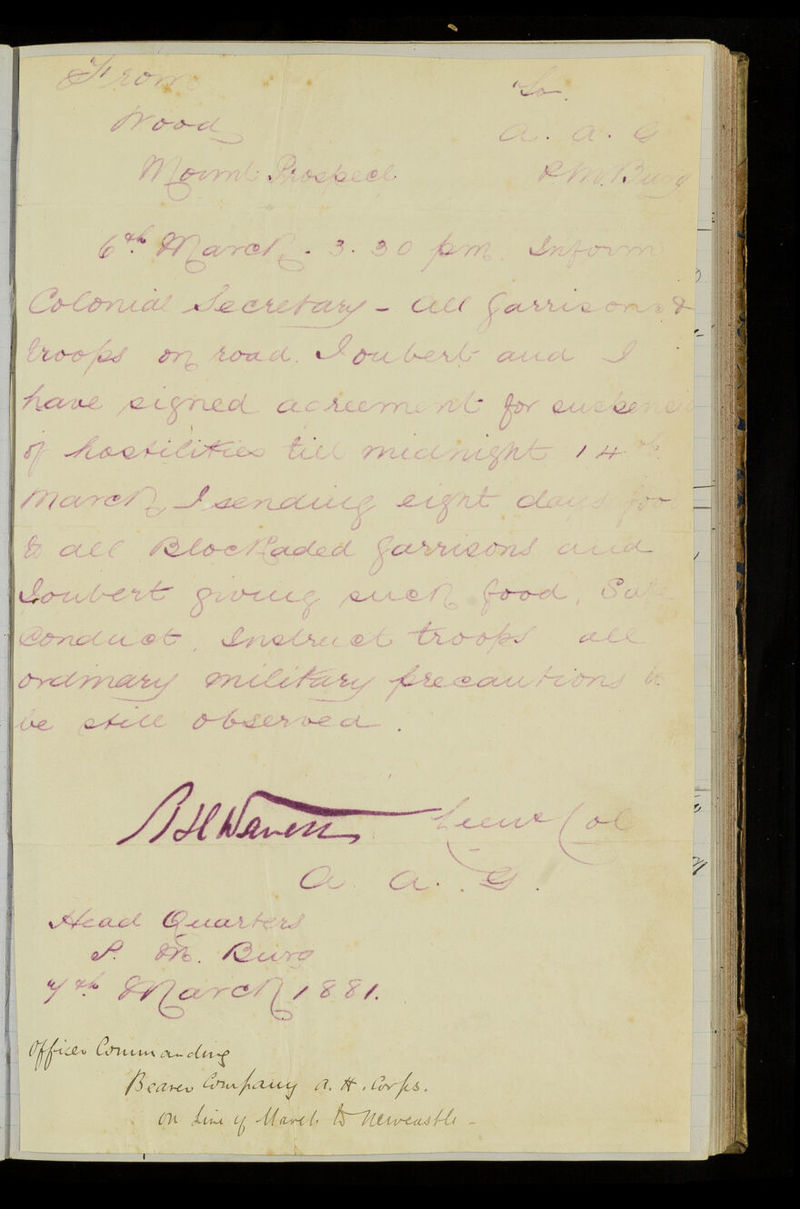 From
To
Wood
A. A. G
Mount Prospect
P. M. Burg
6th March. 3.30 pm. Inform
Colonial Secretary - All Garrisons &
troops on road. Joubert and I
have signed agreement for suspension
of hostilities till midnight 14th
March, I sending eight days food
to all Blockaded Garrisons and
Joubert giving such food, Safe
Conduct. Instruct troops all
ordinary military precautions to
be still observed.
Lieut Col
A. A. G.
Head Quarters
P. M. Burg
7th March 1881.
Officer Commanding
Bearer Company A. H. Corps.
on Line of March to Newcastle -